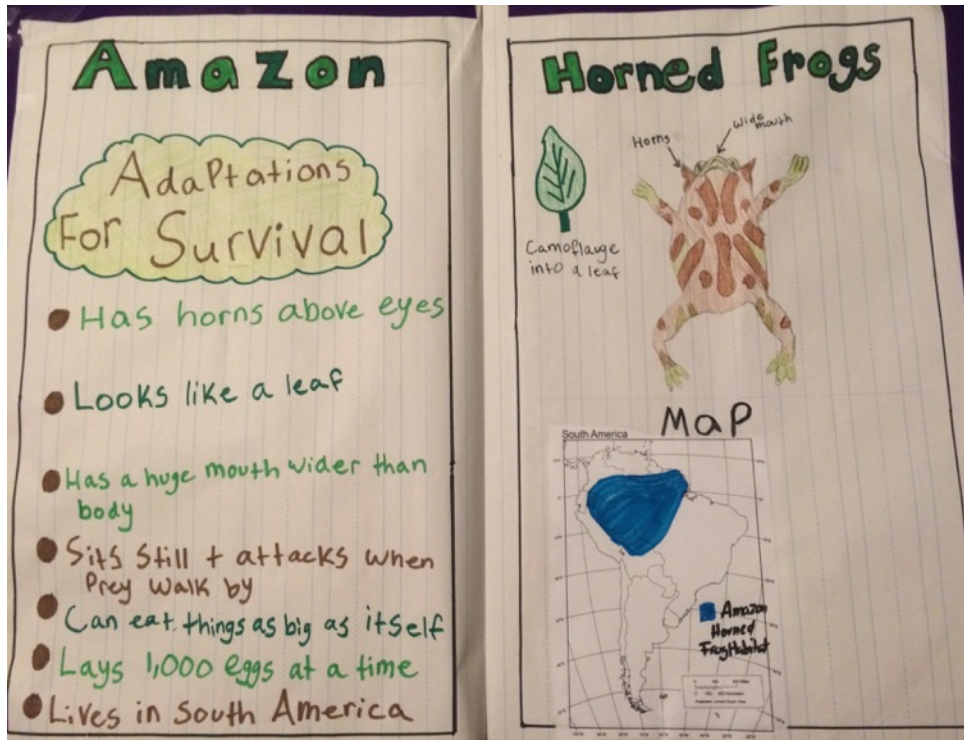 Amazon
Adaptations
For Survival
Has horns above eyes
Looks like a leaf
Has a huge mouth wider than
body
Sits still + attacks when
Prey walk by
Can eat things as big as itself
Lays 1,000 eggs at a time
Lives in South America
Horned Frogs
Horns
wide
mouth
Camoflauge
into a leaf
Map
South America
Amazon
Horned
Frog Habitat